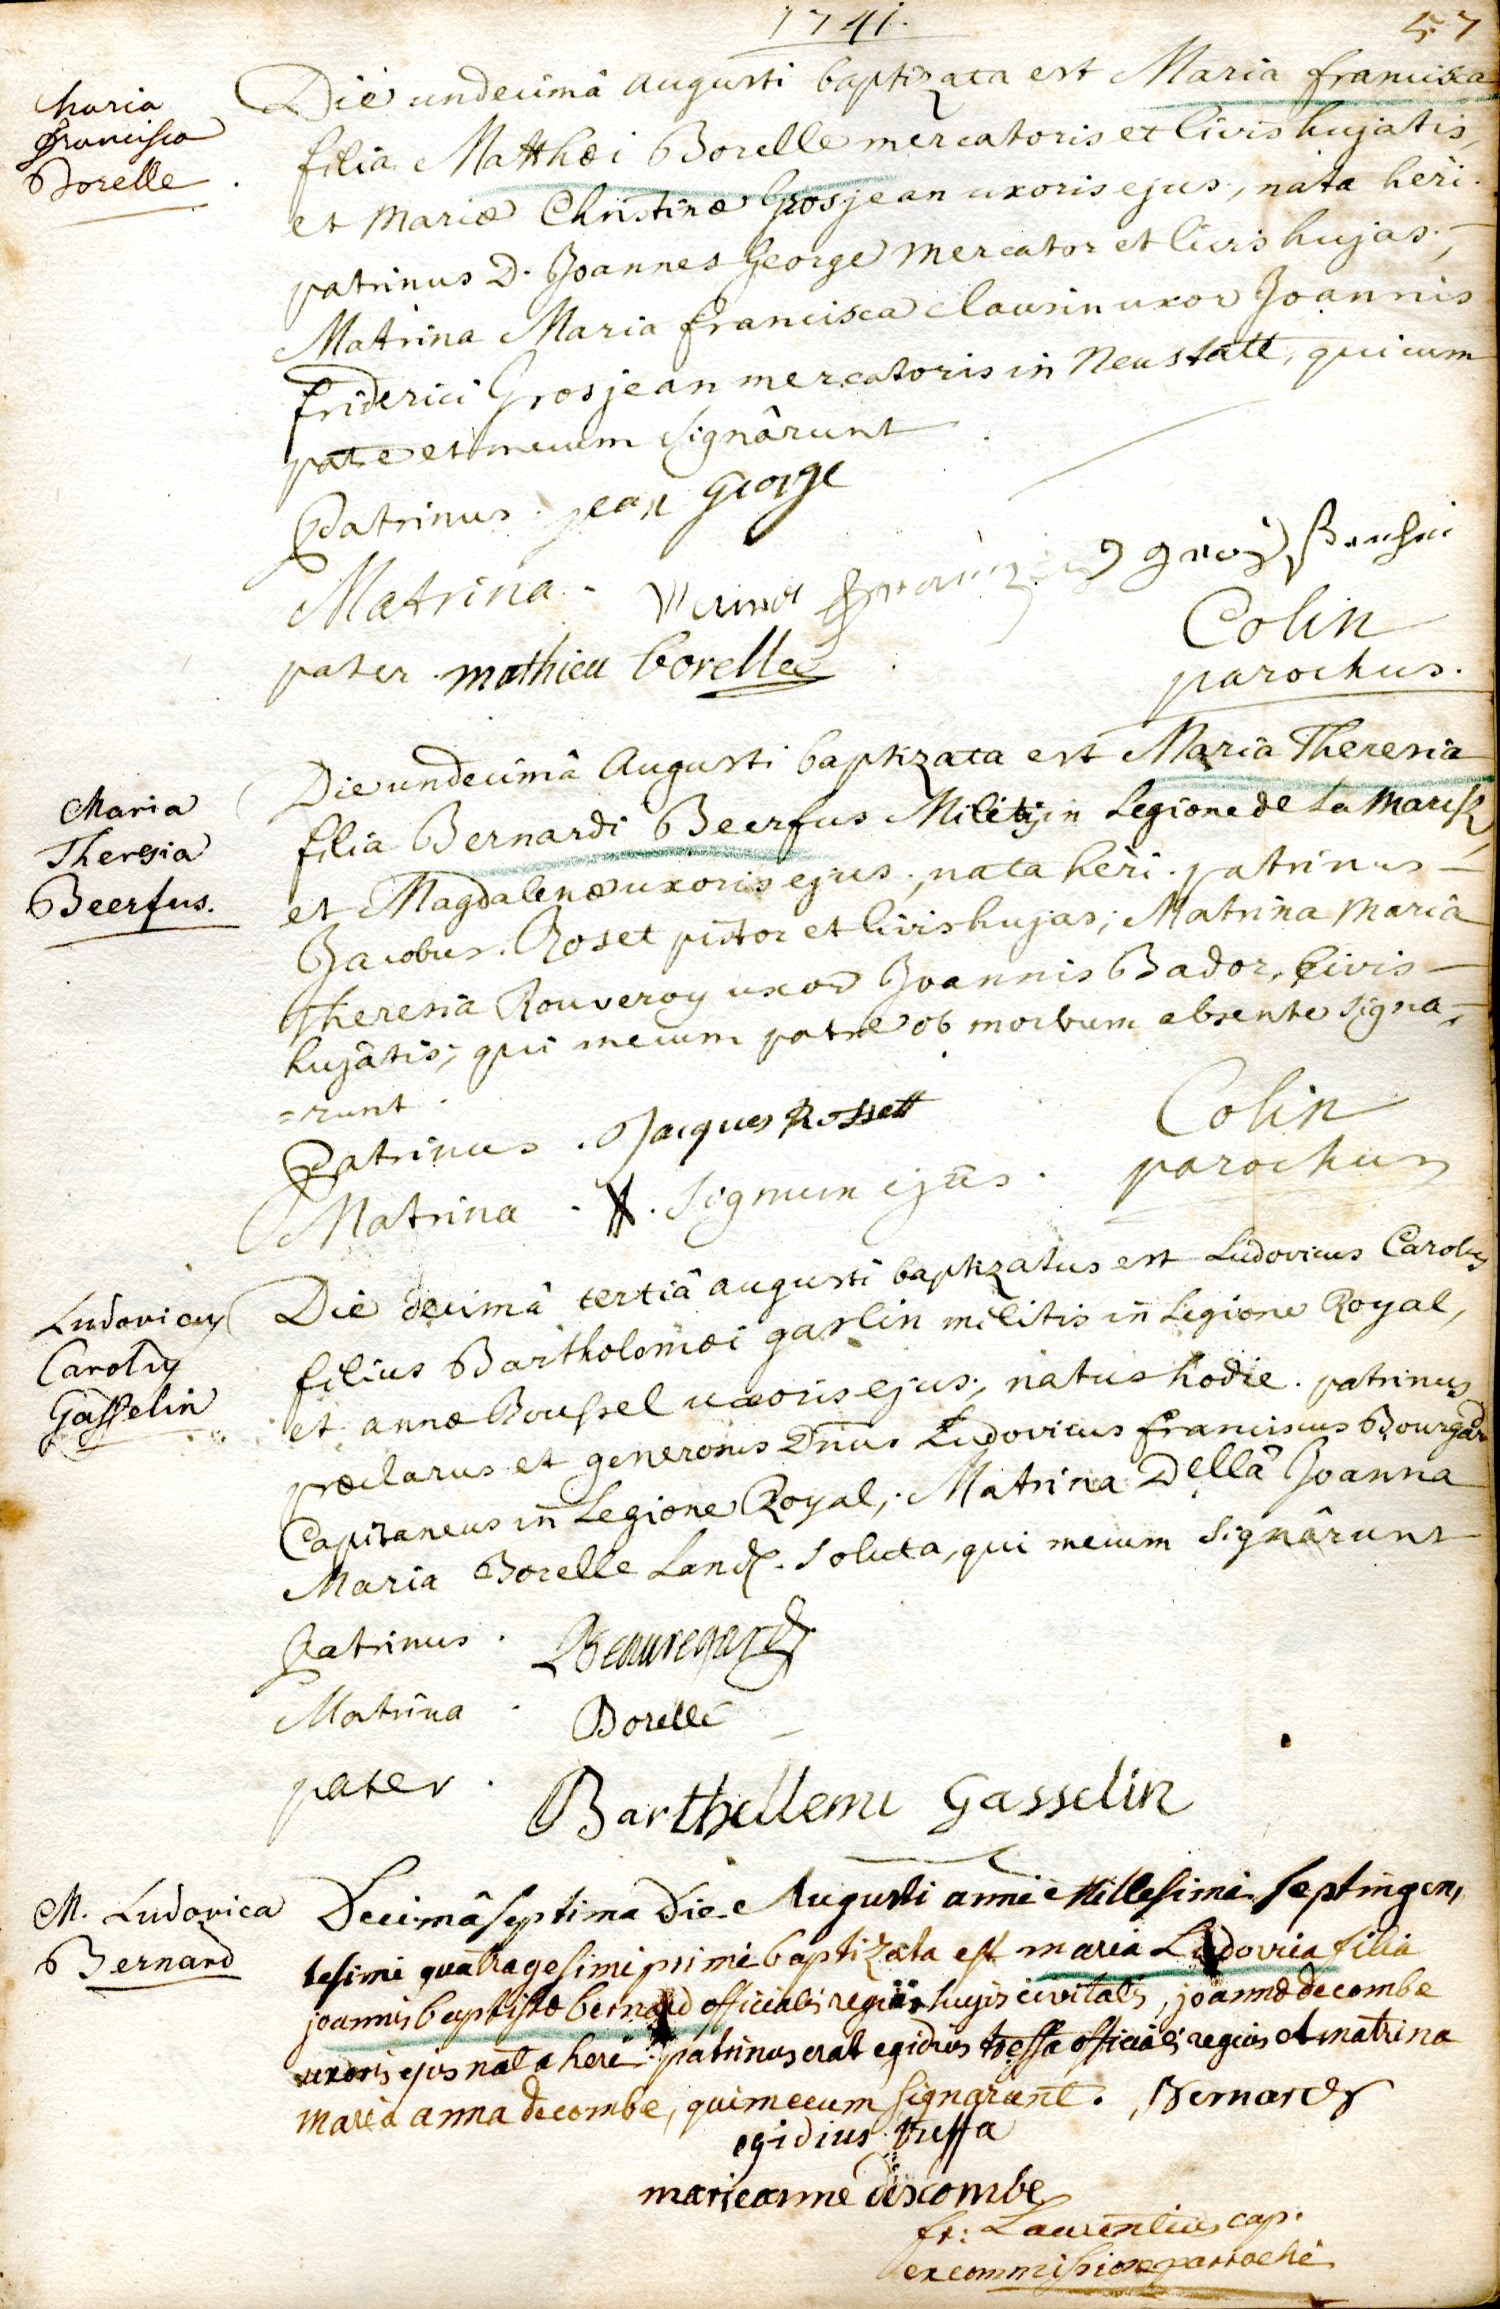 1741.
57
Maria
Francisca
Borelle
Die undecimâ augusti baptizata est Maria francisca
filia Matthæi Borelle mercatoris et Civis hujatis,
et Mariæ Christinæ Grosjean uxoris ejus, nata heri.
patrinus D. Joannes George Mercator et Civis hujas;
Matrina Maria francisca Claurin uxor Joannis
friderici Grosjean mercatoris in Neustatt, qui cum
patre et mecum signârunt
Patrinus. jean George
Matrina.
pater. mathieu borelle
Colin
parochus.
Maria
Theresia
Beerfus.
Die undecimâ Augusti baptizata est Maria Theresia
filia Bernardi Beerfus Militis in Legione de La Marck,
et Magdalenæ uxoris ejus; nata heri. patrinus
Jacobus Roset pistor et Civis hujas; Matrina Maria
Theresia Rouveroy uxor Joannis Bador, Civis
hujatis; qui mecum patre ob morbum absente signa-
=runt.
Patrinus. Jacques Rossett
Matrina. X. Signum ejus.
Colin
parochus
Ludovicus
Carolus
Gasselin
Die decimâ tertiâ augusti baptizatus est Ludovicus Carolus
filius Bartholomæi gaslin militis in Legione Royal,
et annæ Boussel uxoris ejus; natus hodie. patrinus
præclarus et generosus Dnus Ludovicus franciscus Bourgard
Capitaneus in Legione Royal; Matrina Della Joanna
Maria Borelle Land. soluta, qui mecum signârunt
Patrinus. Beauregard
Matrina. Borelle
pater. Barthellemi Gasselin
M. Ludovica
Bernard
Decimâ septima die Augusti anni Millesimi septingen,
tesimi quatragesimi primi baptizata est maria Ludovica filia
joannis baptistæ bernard officialis regii hujis civitatis, joannæ decombe
uxoris ejus nata heri. patrinus erat egidius tressa officialis regius et matrina
maria anna decombe, qui mecum signarunt. Bernard
egidius tressa
marieanne descombe
fr: Laurentius cap.
ex commissione parrochi